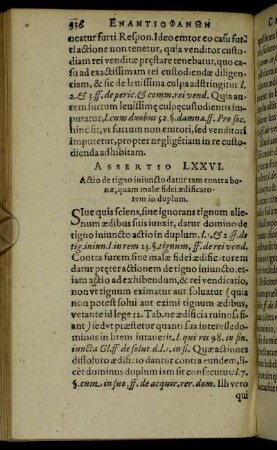 936 ΕΝΑΝΤΙΟΦΑΝΩΝ
neatur furti. Respon. Ideo emtor eo casu furti actione non tenetur, quia venditor custodiam rei venditæ præstare tenebatur, quo casu ad exactissimam rei custodiendæ diligentiam, & sic de levissima culpa adstringitur l.
2. & 3. ff. de peric. & comm. rei vend. Quia autem furtum levissimę culpę custodientis imputatur, l. cum duobus 52. §. damna. ff. Pro soc.
hinc fit, vt furtum non emtori, sed venditori imputetur, propter negligẽtiam in re custodienda adhibitam.
ASSERTIO LXXVI.
Actio de tigno iniuncto datur tam contra bonæ, quam malæ fidei ædificatorem in duplum.
Siue quis sciens, siue ignorans tignum alienum ædibus suis iunxit, datur domino de tigno iniuncto actio in duplum. l. 1. & 2. ff. de tig. iniun. l. in rem 23. §. tignum, ff. de rei vend.
Contra furem siue malæ fidei ædificatorem datur præter actionem de tigno iniuncto, etiam actio ad exhibendum, & rei vendicatio, non vt tignum eximatur aut soluatur (quia non potest solui aut eximi tignum ædibus, vetante id lege 12. Tab. ne ædificia ruinosa fiant) sed vt præstetur quanti sua interesse dominus in litem iurauerit. l. qui res 98. in fin.
iuncta Gl. ff. de solut. d. l. 1. in fi. Quæ actiones dissoluto ædificio dantur contra eundem, licet dominus duplum iam sit consecutus. l. 7.
§. cum in suo, ff. de acquir. rer. dom. Illi vero
qui